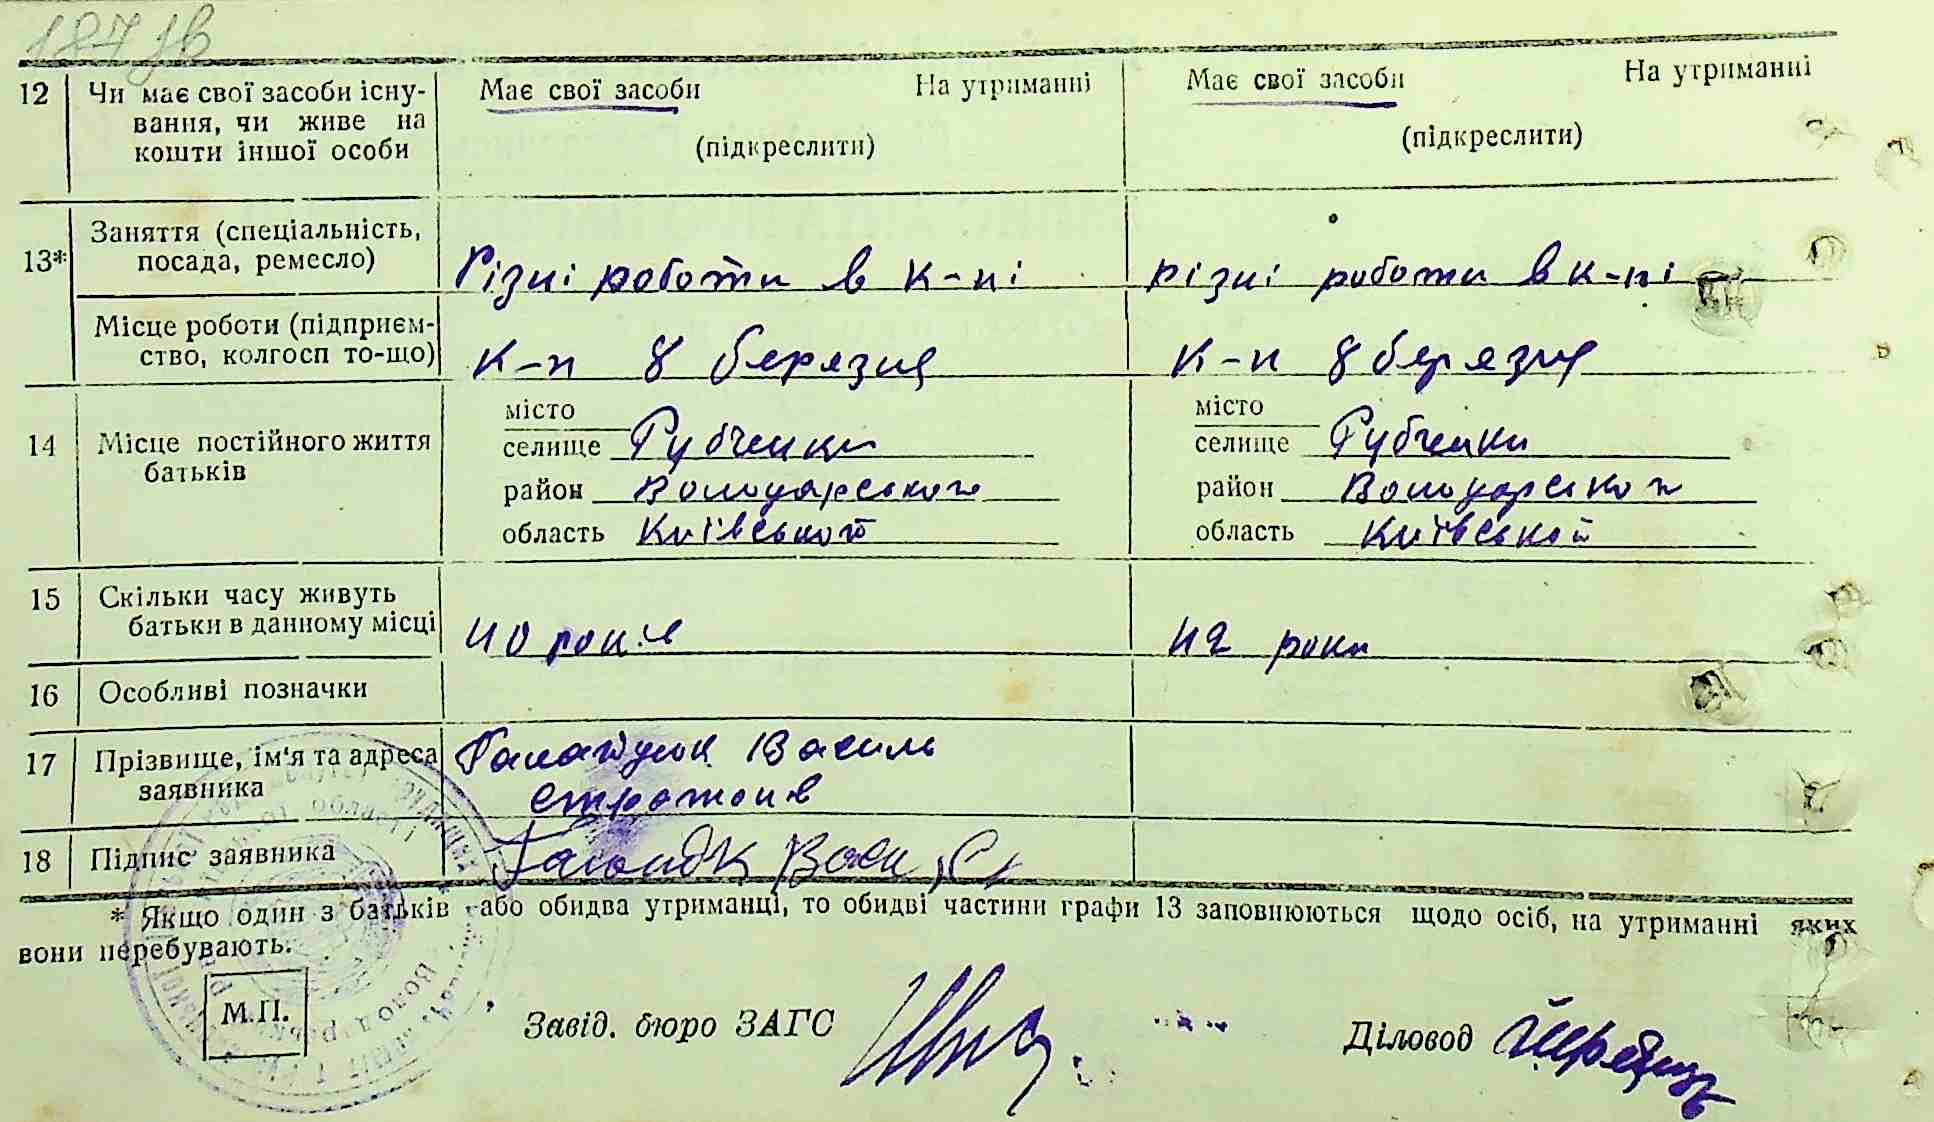 187 зв
12 Чи має свої засоби існу- Має свої засоби На утриманні Має свої засоби На утриманні
вання, чи живе на
кошти іншої особи (підкреслити) (підкреслити)
13* Заняття (спеціальність,
посада, ремесло) Різні роботи в к-пі різні роботи в к-пі
Місце роботи (підприєм-
ство, колгосп то-що) к-п 8 березня к-п 8 березня
14 Місце постійного життя
батьків
місто місто
селище Рубченки селище Рубченки
район Володарського район Володарского
область Київського область Київськой
15 Скільки часу живуть
батьки в данному місці 40 років 42 роки
16 Особливі позначки
17 Прізвище, ім'я та адреса Василь
заявника
18 Підпис заявника
* Якщо один з батьків або обидва утриманці, то обидві частини графи 13 заповнюються щодо осіб, на утриманні яких
вони перебувають.
М.П. Завід. бюро ЗАГС Діловод